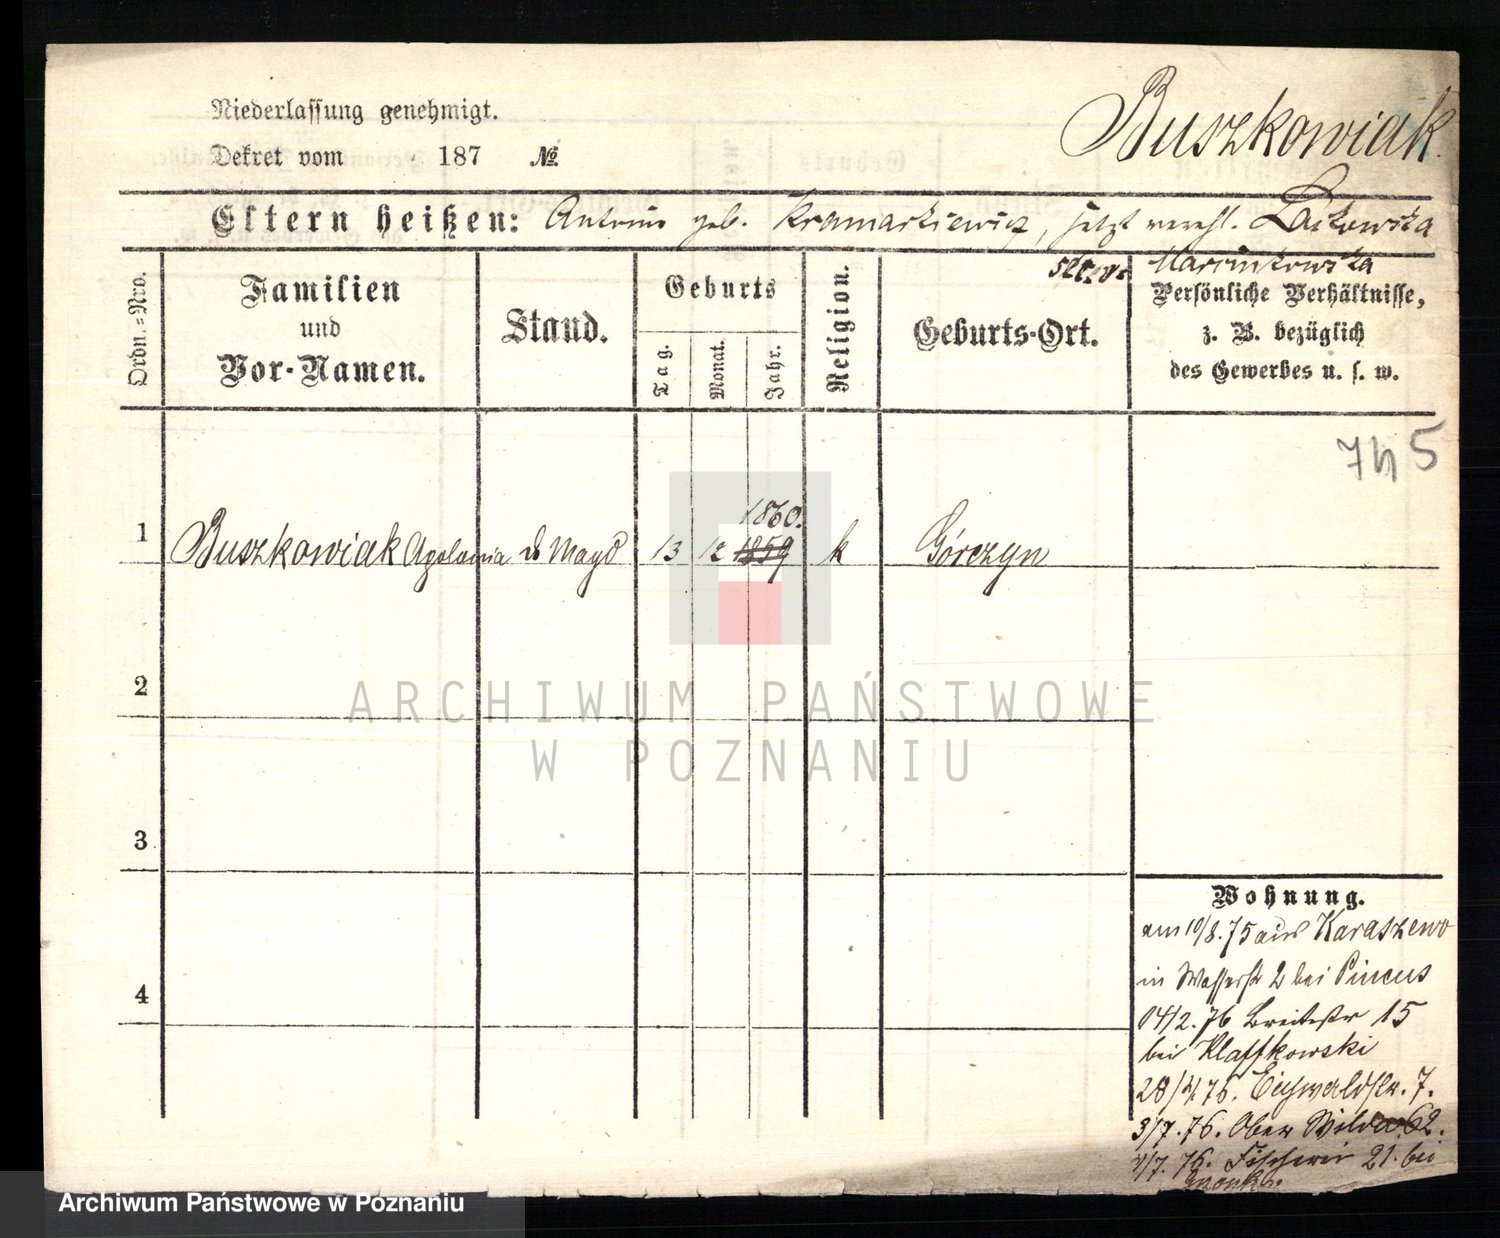 Niederlassung genehmigt.
Dekret vom 187 №
Buszkowiak
Eltern heißen: Antonie geb. Kramarkiewicz, jetzt verehl.
Marcinkowska
Ordn.=Nro.
Familien
und
Vor-Namen.
Stand.
Geburts
Tag.
Monat.
Jahr.
Religion.
Geburts-Ort.
Persönliche Verhältnisse,
z. B. bezüglich
des Gewerbes u. s. w.
745
1860.
1 Buszkowiak Apolonia Magd 13 12 1859 k Górczyn
2
3
4
Wohnung.
am 10/8.75 aus Karaszewo
in Wasserstr 2 bei Pincus
04/2.76 Breitestr 15
bei Klaffkowski
Eichwaldstr. 7.
3/7.76. Ober Wilda 62.
/7.76. Fischerei 21. bei
ARCHIWUM PAŃSTWOWE
W POZNANIU
Archiwum Państwowe w Poznaniu